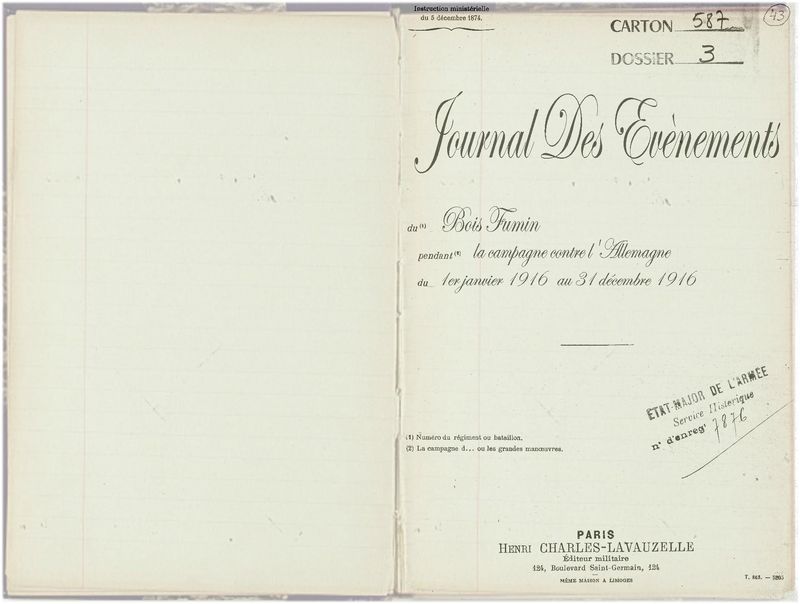 Instruction ministérielle
du 5 décembre 1874.
CARTON 587
43
DOSSIER 3
Journal Des Evènements
du (1) Bois Fumin
pendant (2) la campagne contre l'Allemagne
du 1er janvier 1916 au 31 décembre 1916
ETAT-MAJOR DE L'ARMÉE
Service Historique
n° d'enregt 7876
(1) Numéro du régiment ou bataillon.
(2) La campagne d... ou les grandes manœuvres.
PARIS
HENRI CHARLES-LAVAUZELLE
Éditeur militaire
124, Boulevard Saint-Germain, 124
MÊME MAISON A LIMOGES